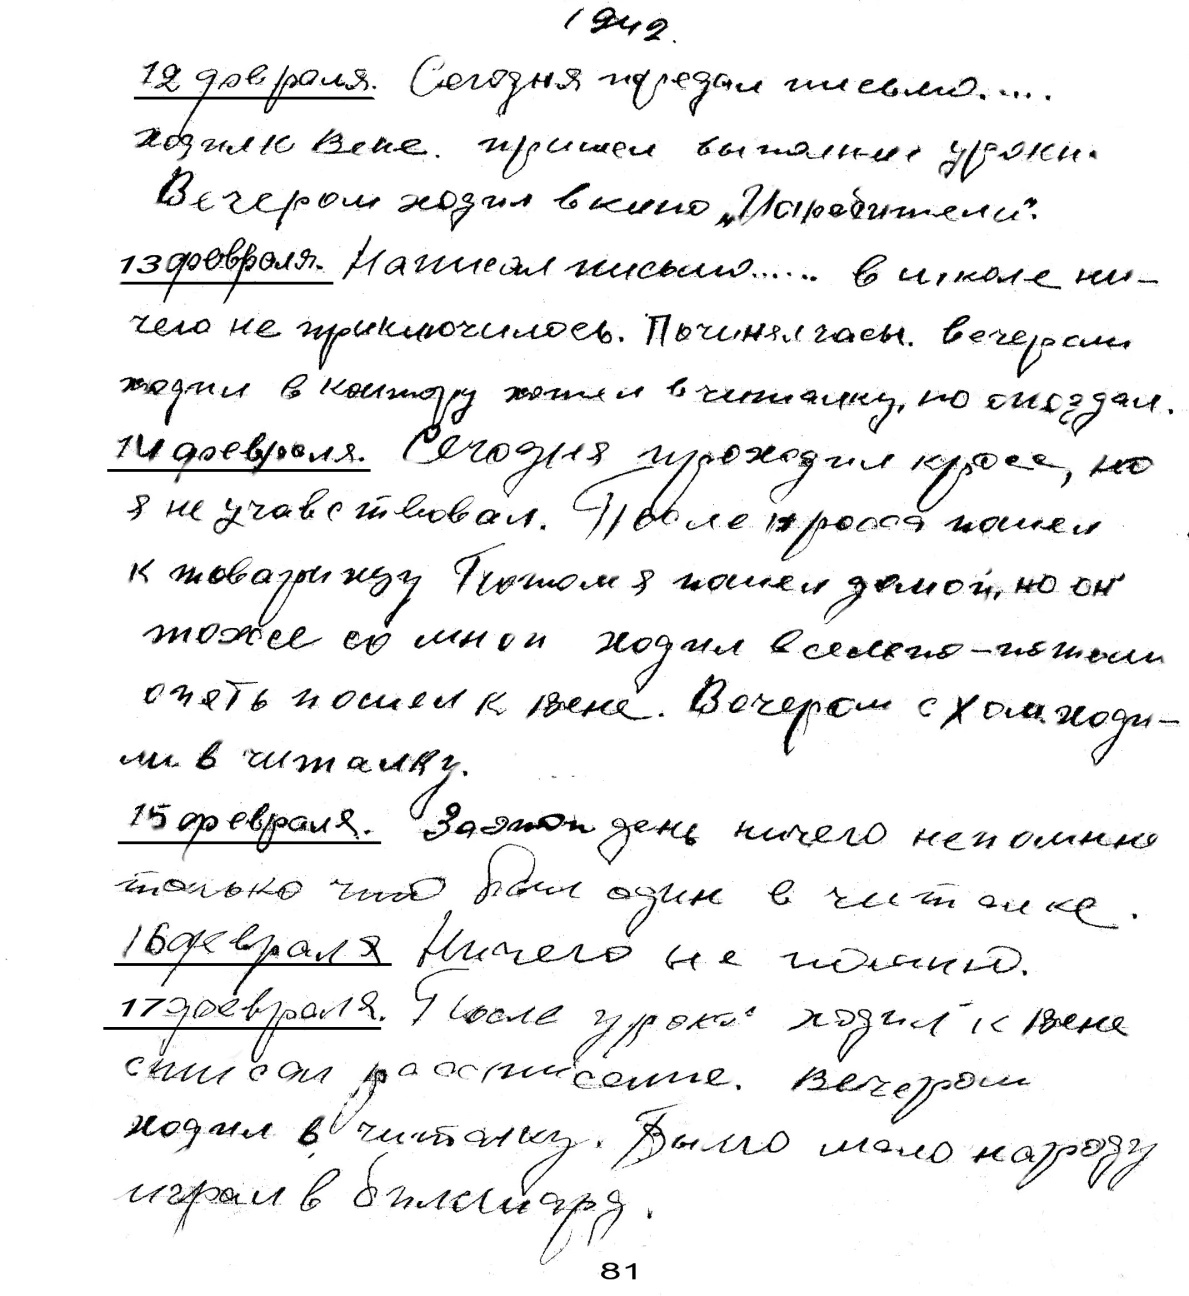 1942.
12 февраля. Сегодня передал письмо.....
ходил к Вене. пришел выполнил уроки.
Вечером ходил в кино „Истребители".
13 февраля. Написал письмо...... в школе ни-
чего не приключилось. Починял часы. вечером
ходил в контору хотел в читалку, но опоздал.
14 февраля. Сегодня проходил кросс, но
я не учавствовал. После кросса пошел
к товарищу Потом я пошел домой, но он
тоже со мной ходил в сельпо - потом
опять пошел к Вене. Вечером с Хам. ходи-
ли в читалку.
15 февраля. За этот день ничего не помню
только что был один в читалке.
16 февраля Ничего не помню.
17 февраля. После урока ходил к Вене
списал рассписание. Вечером
ходил в читалку. Было мало народу
играл в биллиард.
81